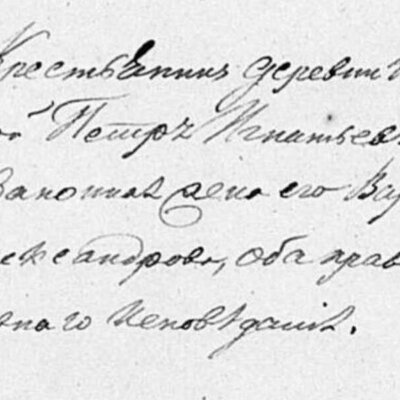 Крестьянинъ деревни
Петръ Игнатьев
законная жена его Вар
лександрова, оба прав
наго исповѣданія.